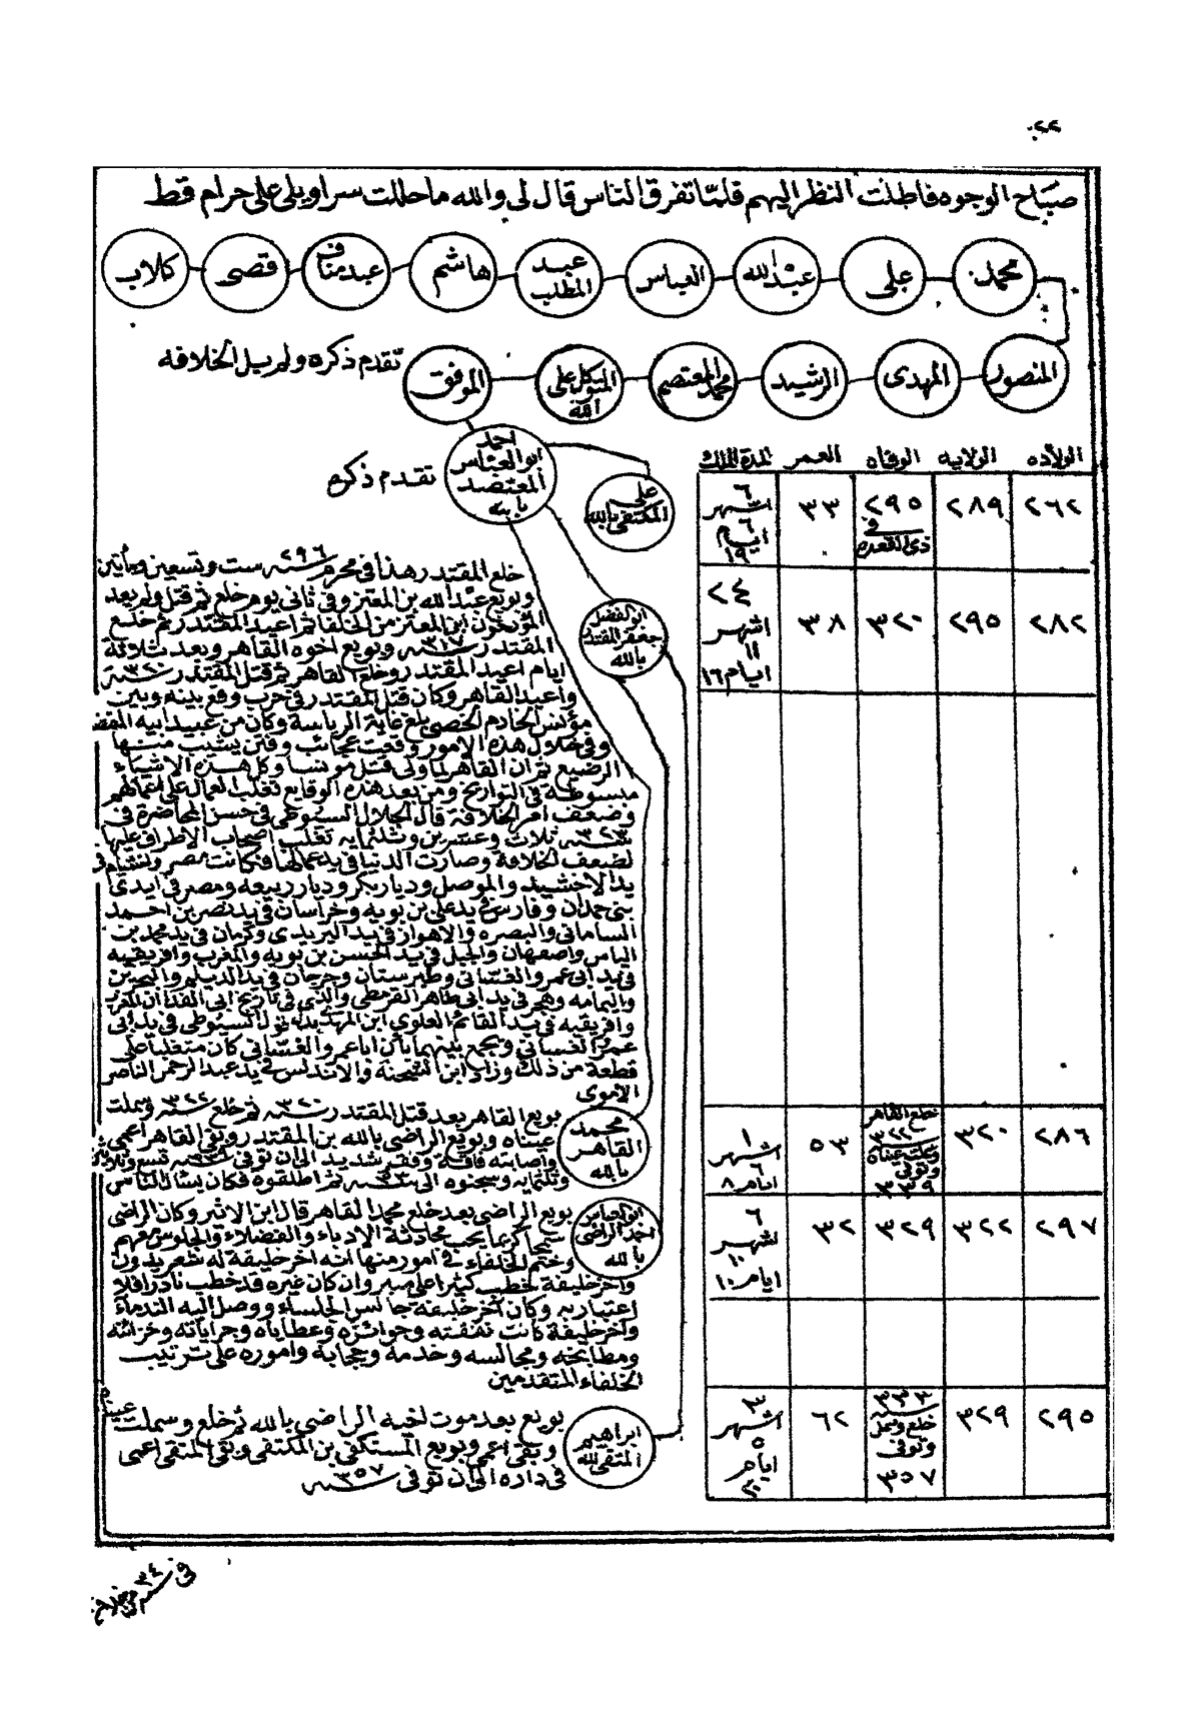 ٢٢
صباح الوجوه فاطلت النظر اليهم فلما تفرق الناس قال لى والله ما حللت سراويلى على حرام قط
محمد على عبد الله العباس عبد المطلب هاشم عبد مناف قصى كلاب
المنصور المهدى الرشيد محمد المعتصم المتوكل على الله الموفق تقدم ذكره ولم يل الخلافه
احمد ابو العباس المعتضد بالله تقدم ذكره
على المكتفى بالله
الولاده الولايه الوفاه العمر مدة الملك
٢٦٢ ٢٨٩ ٢٩٥ فى ذى القعده ٣٣ ٦ اشهر ٦ ايام ١٩
ابو الفضل جعفر المقتدر بالله
٢٨٢ ٢٩٥ ٣٢٠ ٣٨ ٢٤ اشهر ١١ ايام ١٦
خلع المقتدر هذا فى محرم سنه ٢٩٦ ست وتسعين ومأتين
وبويع عبد الله بن المعتز وفى ثانى يوم خلع ثم قتل ولم يعد
المؤرخون ابن المعتز من الخلفا ثم اعيد المقتدر ثم خلع
المقتدر سنه ٣١٧ وبويع اخوه القاهر وبعد ثلاثة
ايام اعيد المقتدر وخلع القاهر ثم قتل المقتدر سنه ٣٢٠
واعيد القاهر وكان قتل المقتدر فى حرب وقع بينه وبين
مؤنس الخادم الخصى بلغ غاية الرياسة وكان من عبيد ابيه
وفى خلال هذه الامور وقعت عجائب وفتن يشيب منها
الرضيع ثم ان القاهر لما ولى قتل مونسا وكل هذه الاشياء
مبسوطة فى التواريخ ومن بعد هذه الوقايع تغلب العمال على اعمالهم
وضعف امر الخلافة قال الجلال السيوطى فى حسن المحاضرة فى
سنه ٣٢٣ ثلاث وعشرين وثلثمايه تغلب اصحاب الاطراف عليها
لضعف الخلافة وصارت الدنيا فى يد عمالها فكانت مصر والشام فى
يد الاخشيد والموصل وديار بكر وديار ربيعه ومضر فى ايدى
بنى حمدان وفارس فى يد على بن بويه وخراسان فى يد نصر بن احمد
السامانى والبصره والاهواز فى يد البريدى وكرمان فى يد محمد بن
الياس واصفهان والجبل فى يد الحسن بن بويه والمغرب وافريقيه
فى يد ابى عمر والغسانى وطبرستان وجرجان فى يد الديلم والبحرين
واليمامه وهجر فى يد ابى طاهر القرمطى والذى فى تاريخ ابى الفدا ان المغرب
وافريقيه فى يد القائم العلوى ابن المهدى قول السيوطى فى يد ابى
عمرو الغسانى ويجمع بينهما بان ابا عمرو الغسانى كان متغلبا على
قطعة من ذلك وزاد ابن الشحنة والاندلس فى يد عبد الرحمن الناصر
الاموى
محمد القاهر بالله
بويع القاهر بعد قتل المقتدر سنه ٣٢٠ ثم خلع سنه ٣٢٢ وسملت
عيناه وبويع الراضى بالله بن المقتدر وبقى القاهر اعمى
واصابته فاقة وفقر شديد الى ان توفى سنه ٣٣٩ تسع وثلاثين
وثلثمايه وسجنوه الى سنه ثم اطلقوه فكان يسأل الناس
٢٨٦ ٣٢٠ خلع القاهر سنه ٣٢٢ وسملت عيناه وتوفى ٣٣٩ ٥٣ ١ اشهر ٦ ايام ٨
ابو العباس احمد الراضى بالله
بويع الراضى بعد خلع محمد القاهر قال ابن الاثير وكان الراضى
سمحا كريما يحب محادثة الادباء والفضلاء والجلوس معهم
وختم الخلفاء فى امور منها انه اخر خليفة له شعر يدون
واخر خليفة خطب كثيرا على منبر وان كان غيره قد خطب نادرا فلا
اعتبار به وكان آخر خليفة جالس الجلساء ووصل اليه الندماء
واخر خليفة كانت نفقته وجوائزه وعطاياه وجراياته وخزائنه
ومطابخه ومجالسه وخدمه وحجابه واموره على ترتيب
الخلفاء المتقدمين
٢٩٧ ٣٢٢ ٣٢٩ ٣٢ ٦ شهر ١٠ ايام ١٠
ابراهيم المتقى لله
بويع بعد موت اخيه الراضى بالله ثم خلع وسملت عيناه
وبقى اعمى وبويع المستكفى بن المكتفى وبقى المتقى اعمى
فى داره الى ان توفى سنه ٣٥٧
٢٩٥ ٣٢٩ ٣٣٣ سنه خلع وسمل وتوفى ٣٥٧ ٦٢ ٣ اشهر ٥ ايام ٢٠
فى ٣٤